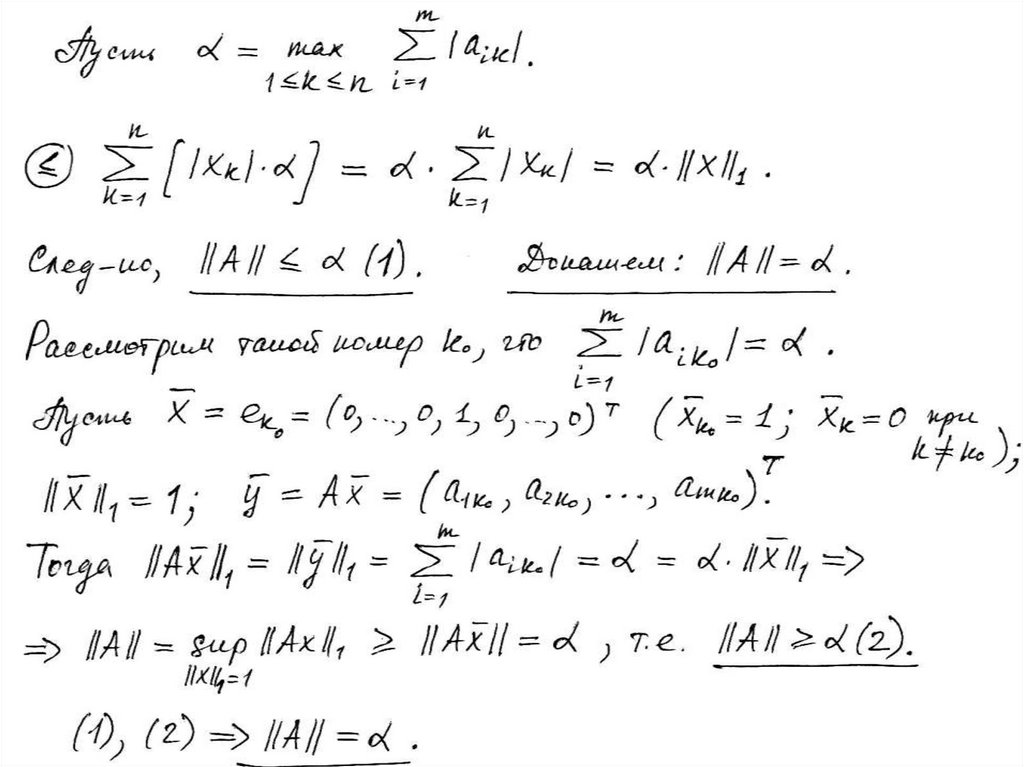 Пусть α = max_{1≤k≤n} ∑_{i=1}^{m} |a_{ik}|.
(≤) ∑_{k=1}^{n} [|x_k|·α] = α · ∑_{k=1}^{n} |x_k| = α·‖x‖₁ .
След-но, ‖A‖ ≤ α (1). Докажем: ‖A‖ = α .
Рассмотрим такой номер k₀, что ∑_{i=1}^{m} |a_{ik₀}| = α .
Пусть x̄ = e_{k₀} = (0, ..., 0, 1, 0, ..., 0)ᵀ (x̄_{k₀} = 1; x̄_k = 0 при k ≠ k₀);
‖x̄‖₁ = 1; ȳ = Ax̄ = (a_{1k₀}, a_{2k₀}, ..., a_{mk₀})ᵀ.
Тогда ‖Ax̄‖₁ = ‖ȳ‖₁ = ∑_{i=1}^{m} |a_{ik₀}| = α = α·‖x̄‖₁ ⇒
⇒ ‖A‖ = sup_{‖x‖₁=1} ‖Ax‖₁ ≥ ‖Ax̄‖ = α , т.е. ‖A‖ ≥ α (2).
(1), (2) ⇒ ‖A‖ = α .